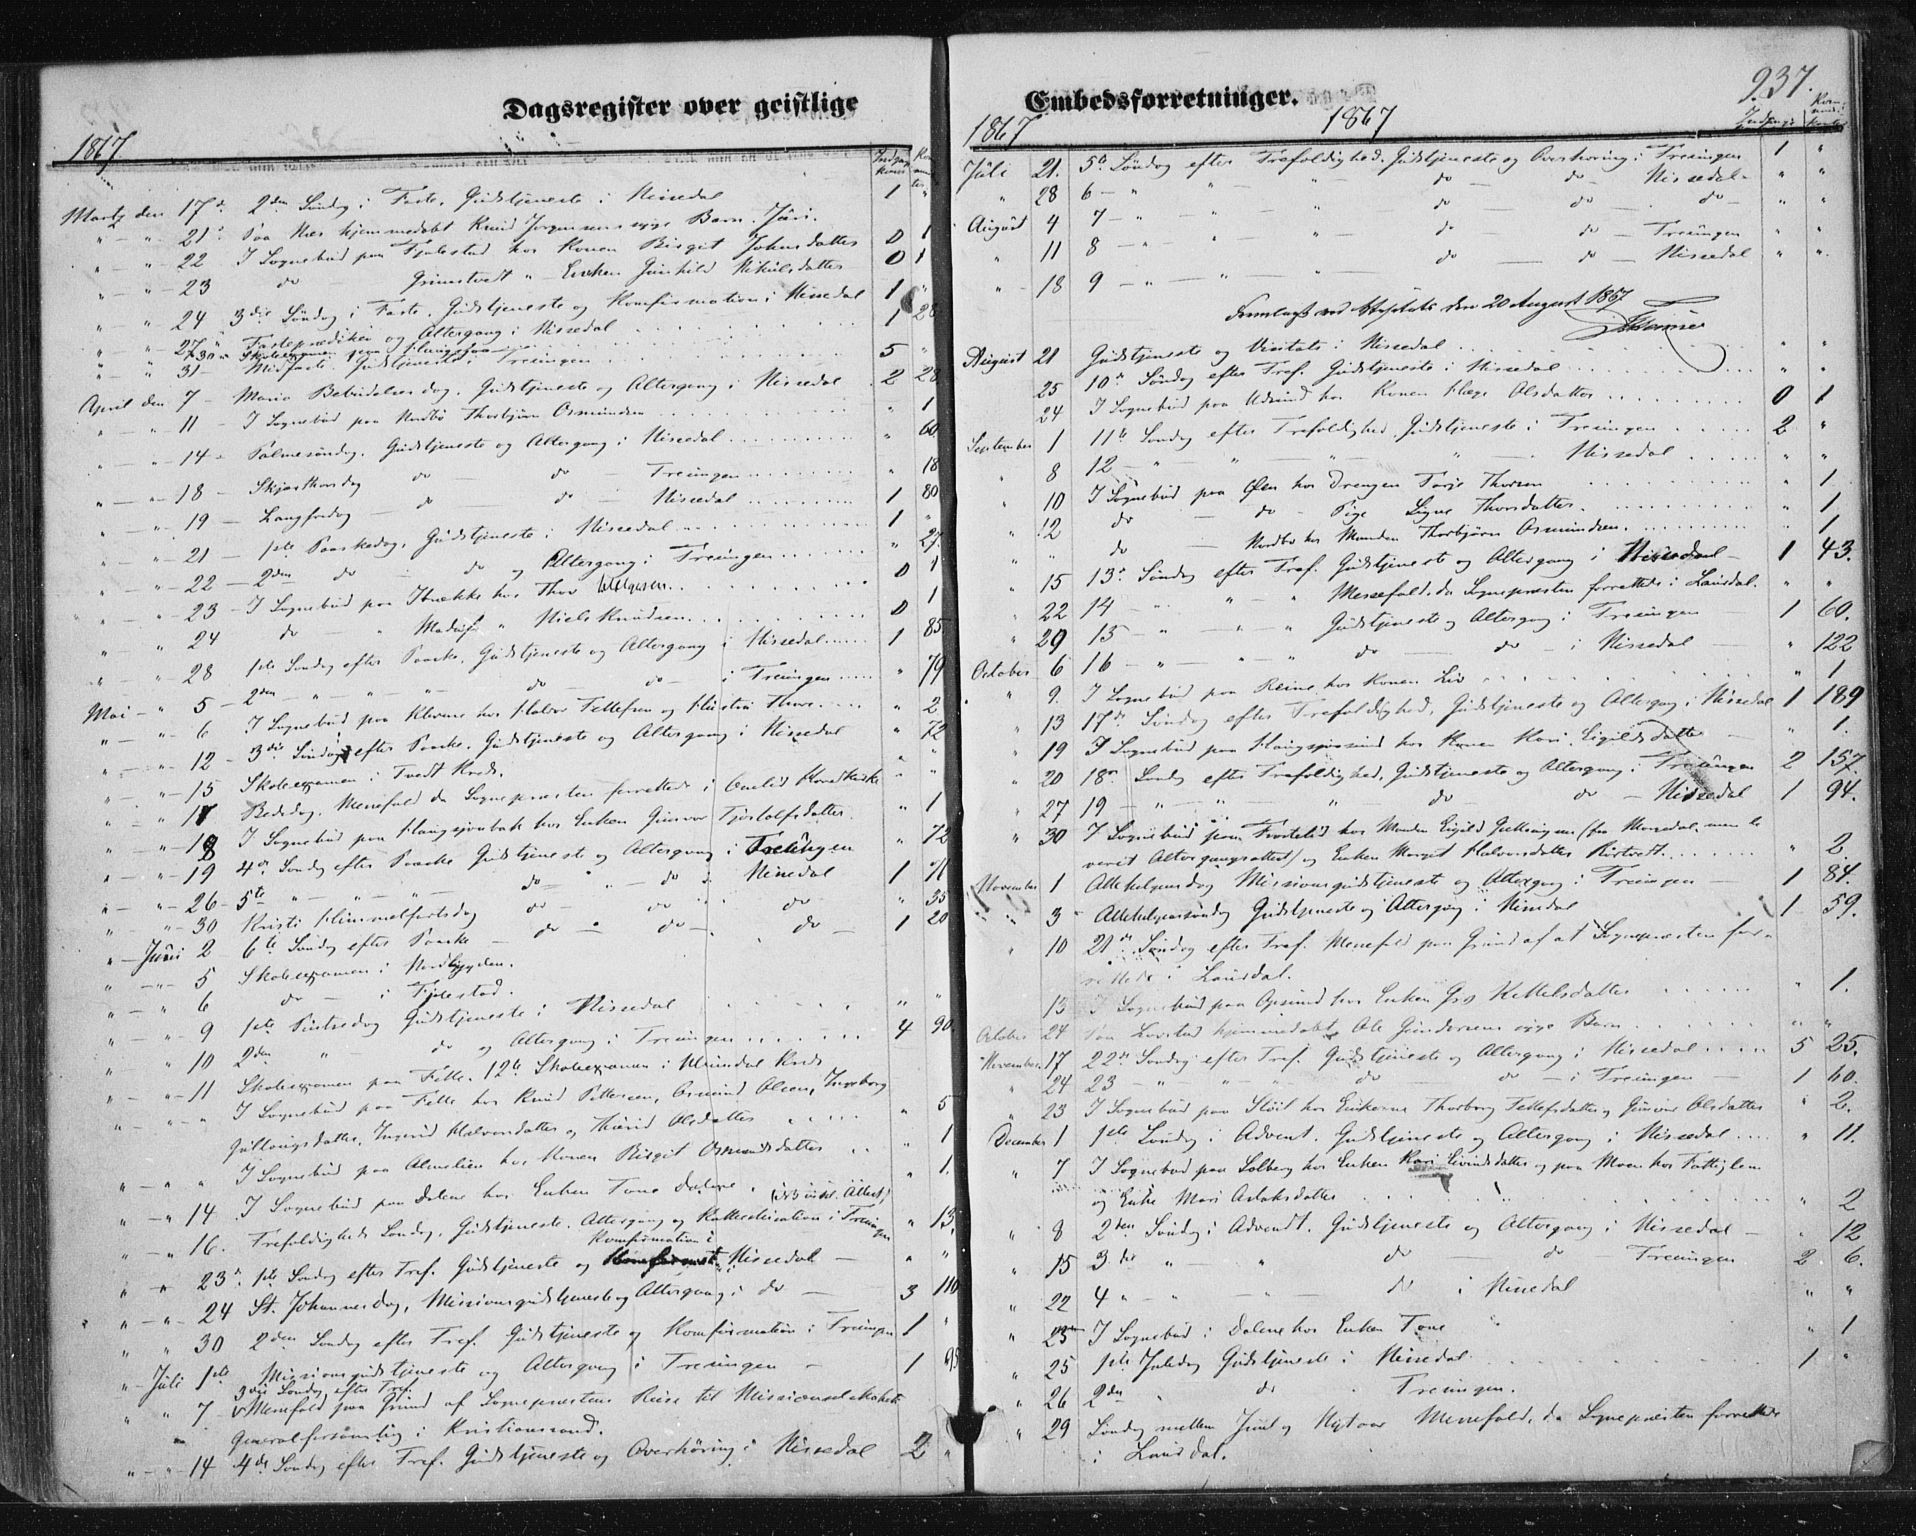 Dagsregister over geistlige
1867
Martz den 17de 2den Søndag i Faste, Gudstjeneste i Nissedal 1 "
" " 21 Paa Næs hjemmedøbt Knud Jørgensens syge Barn. Juri.
" " 22 I Sognebud paa Fjalestad hos Konen Birgit Johnsdatter 0 1
" " 23 do Grimstvedt " Enken Gunhild Nikulsdatter 0 1
" " 24 3die Søndag i Faste, Gudstjeneste og Konfirmation i Nissedal 1 "
" " 27 Fasteprædiken og Altergang i Nissedal 1 28
" 30 Skoleexamen
" " 31 Midfaste. Gudstjeneste i Treungen 5 "
April den 7 Maria Bebudelsesdag, Gudstjeneste og Altergang i Nissedal 2 28
" " 11 I Sognebud paa Nordbø Thorbjørn Osmundsen " 1
" " 14 Palmesøndag, Gudstjeneste og Altergang i Nissedal " 60
" " 18 Skjærthorsdag do do Treungen " 18
" " 19 Langfredag do do Nissedal 1 80
" " 21 1ste Paaskedag, Gudstjeneste i Nissedal 1 "
" " 22 2den do do og Altergang i Treungen " 27
" " 23 I Sognebud paa hos Thor 0 1
" " 24 do " Niels Knudsen 0 1
" " 28 1ste Søndag efter Paaske, Gudstjeneste og Altergang i Nissedal 1 85
Mai " 5 2den " " " do do i Treungen " 79
" " 6 I Sognebud paa Klevene hos Halvor Tellefsen og Hustru Thore " 2
" " 12 3die Søndag efter Paaske, Gudstjeneste og Altergang i Nissedal " 72
" " 15 Skoleexamen i Tvedt Kreds. " "
" " 17 Bededag, Messefald da Sognepræsten forrettede i Hovedkirke " "
" " 18 I Sognebud paa hos Enken Gunvor Tjostolfsdatter " 1
" " 19 4de Søndag efter Paaske Gudstjeneste og Altergang i Treungen " 72
" " 26 5te " " " do " do i Nissedal 1 71
" " 30 Kristi Himmelfartsdag do do do " 35
" Juni 2 6te Søndag efter Paaske do do do 1 20
" " 5 Skoleexamen i Nordbygden.
" " 6 do i Fjalestad.
" " 9 1ste Pintsedag Gudstjeneste i Nissedal " "
" " 10 2den " do og Altergang i Treungen 4 90
" " 11 Skoleexamen paa Felle. 12te Skoleexamen i Kreds
" " " I Sognebud paa Felle hos Knud Pettersen, Osmund Olsen, Ingeborg
Gullaugsdatter, Ingerid Halvorsdatter og Thurid Olsdatter " 5
" " " I Sognebud paa hos Konen Birgit Osmundsdatter " 1
" " 14 I Sognebud paa Dalene hos Enken Tone Dalene " 1
" " 16. Trefoldigheds Søndag, Gudstjeneste. Altergang og Katechisation i Treungen " 13
Konfirmation i
" " 23de 1ste Søndag efter Tref. Gudstjeneste og Nissedal " "
" " 24 St. Johannesdag, Missionsgudstjeneste og Altergang i do 3 110
" " 30 2den Søndag efter Tref. Gudstjeneste og Konfirmation i Treungen 1 "
" Juli 1ste Missionsgudstjeneste og Altergang i Treungen 1 95
3die Søndag efter Tref.
" " 7 Messefald paa Grund af Sognepræstens Reise til Missionsselskabets
Generalforsamling i Kristianssand.
" " 14 4de Søndag efter Tref. Gudstjeneste og Overhøring i Nissedal 2 "
Embedsforretninger.
937.
1867 1867
Juli 21. 5te Søndag efter Trefoldighed. Gudstjeneste og Overhøring i Treungen 1 "
" 28 6 " " " do do Nissedal " "
August 4 7 " " " do do do " "
" 11 8 " " " do do Treungen " "
" 18 9 " " " do do Nissedal " "
Fremlagt ved Visitats den 20 August 1867
August 21 Gudstjeneste og Visitats i Nissedal " "
25 10de Søndag efter Tref. Gudstjeneste i Nissedal " "
24 I Sognebud paa hos Konen Hæge Olsdatter 0 1
September 1 11te Søndag efter Trefoldighed. Gudstjeneste i Treungen 2 "
8 12 " " " " Nissedal " "
10 I Sognebud paa Øen hos Drengen Tarje Thorsen " 1
" 12 do do Pige Signe Thorsdatter " 1
" " do Nordbø hos Manden Thorbjørn Osmundsen " 1
" 15 13de Søndag efter Tref. Gudstjeneste og Altergang i Nissedal 1 43.
" 22 14 " " " Messefald, da Sognepræsten forrettede i Laurdal " "
" 29 15 " " " Gudstjeneste og Altergang i Treungen 1 60.
October 6 16 " " " do do i Nissedal " 122
" 9. I Sognebud paa Reine hos Konen Liv " 1
" 13 17de Søndag efter Trefoldighed, Gudstjeneste og Altergang i Nissedal 1 189
" 19 I Sognebud paa Haugsjaasund hos Konen Kari Eigildsdatter " 1.
" 20 18de Søndag efter Trefoldighed, Gudstjeneste og Altergang i Treungen 2 157.
" 27 19 " " " do do Nissedal 1 94.
" 30 I Sognebud paa hos Manden Eigild (fra men le
veret Altergangsattest) og Enken Margit Halvorsdatter " 2
November 1 Allehelgensdag Missionsgudstjeneste og Altergang i Treungen 1 84.
" 3 Allehelgenssøndag Gudstjeneste og Altergang i Nissedal 1 59.
" 10 21de Søndag efter Tref. Messefald paa Grund af at Sognepræsten for-
rettede i Laurdal.
13 I Sognebud paa hos Enken Gro Kettelsdatter " 1.
October 24 Paa hjemmedøbt Ole Gundersens syge Barn " "
November 17 22de Søndag efter Tref. Gudstjeneste og Altergang i Nissedal 5 25.
" 24 23 " " " do do i Treungen 1 60.
" 23 I Sognebud paa Støil hos Enkerne Thorborg Tellefsdatter og Gunvor Olsdatter " 2.
December 1 1ste Søndag i Advent. Gudstjeneste og Altergang i Nissedal " 11.
" 7 I Sognebud paa Solberg hos Enken Kari Eivindsdatter og paa Moen hos Fattiglem
og Enke Mari Aslaksdatter " 2
" 8 2den Søndag i Advendt. Gudstjeneste og Altergang i Nissedal " 12
" 15 3die " " do do Treungen 2 6.
" 22 4 " " " do i Nissedal " "
" 23 I Sognebud i Dalene hos Enken Tone " 1
" 25 1ste Juledag Gudstjeneste i Nissedal 1 "
" 26 2den " do " Treungen.
" 29 Søndag mellem Juul og Nytaar Messefald, da Sognepræsten forrettede
i Laurdal.